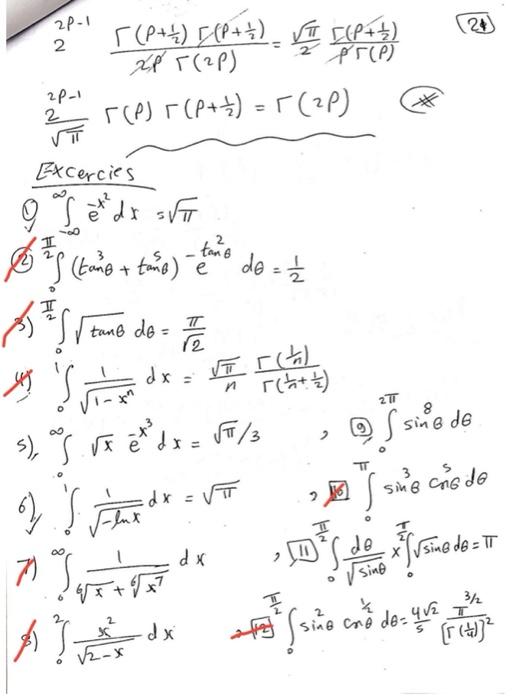 21
2^{2p-1} Γ(p+½) Γ(p+½) / 2p Γ(2p) = √π/2 Γ(p+½) / p Γ(p)
2^{2p-1}/√π Γ(p) Γ(p+½) = Γ(2p) *
Excercies
1) ∫_{-∞}^{∞} e^{-x²} dx = √π
2) ∫_0^{π/2} (tan³θ + tan⁵θ) e^{-tan²θ} dθ = 1/2
3) ∫_0^{π/2} √tanθ dθ = π/√2
4) ∫_0^1 1/√(1-xⁿ) dx = √π/n Γ(1/n)/Γ(1/n+1/2)
5) ∫_0^∞ √x e^{-x³} dx = √π/3 , 9 ∫_0^{2π} sin⁸θ dθ
6) ∫_0^1 1/√(-lnx) dx = √π , 10 ∫_0^π sin³θ cos⁵θ dθ
7) ∫_0^∞ 1/(⁶√x + ⁶√x⁷) dx , 11 ∫_0^{π/2} dθ/√sinθ × ∫_0^{π/2} √sinθ dθ = π
8) ∫_0^2 x²/√(2-x) dx , 12 ∫_0^{π/2} sin²θ cos^{1/2}θ dθ = 4√2/5 π^{3/2}/[Γ(1/4)]²